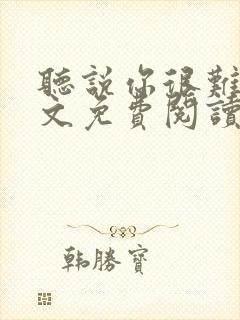 聽說你很難
文免費閱讀
韩勝寶